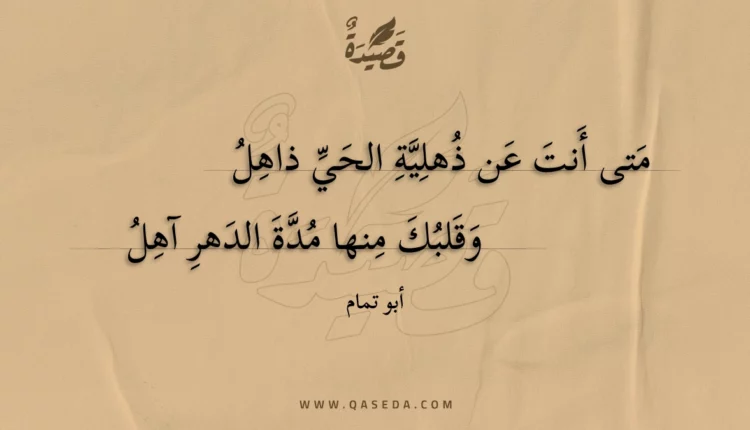 قَصِيدَةٌ
مَتى أَنتَ عَن ذُهلِيَّةِ الحَيِّ ذاهِلُ
وَقَلبُكَ مِنها مُدَّةَ الدَهرِ آهِلُ
أبو تمام
WWW.QASEDA.COM